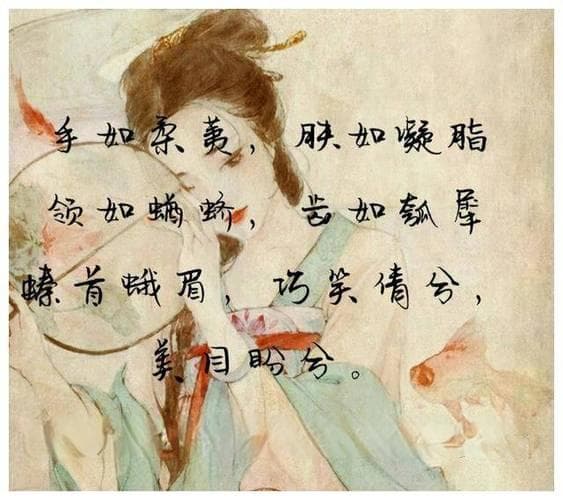 手如柔荑，肤如凝脂
领如蝤蛴，齿如瓠犀
螓首蛾眉，巧笑倩兮，
美目盼兮。